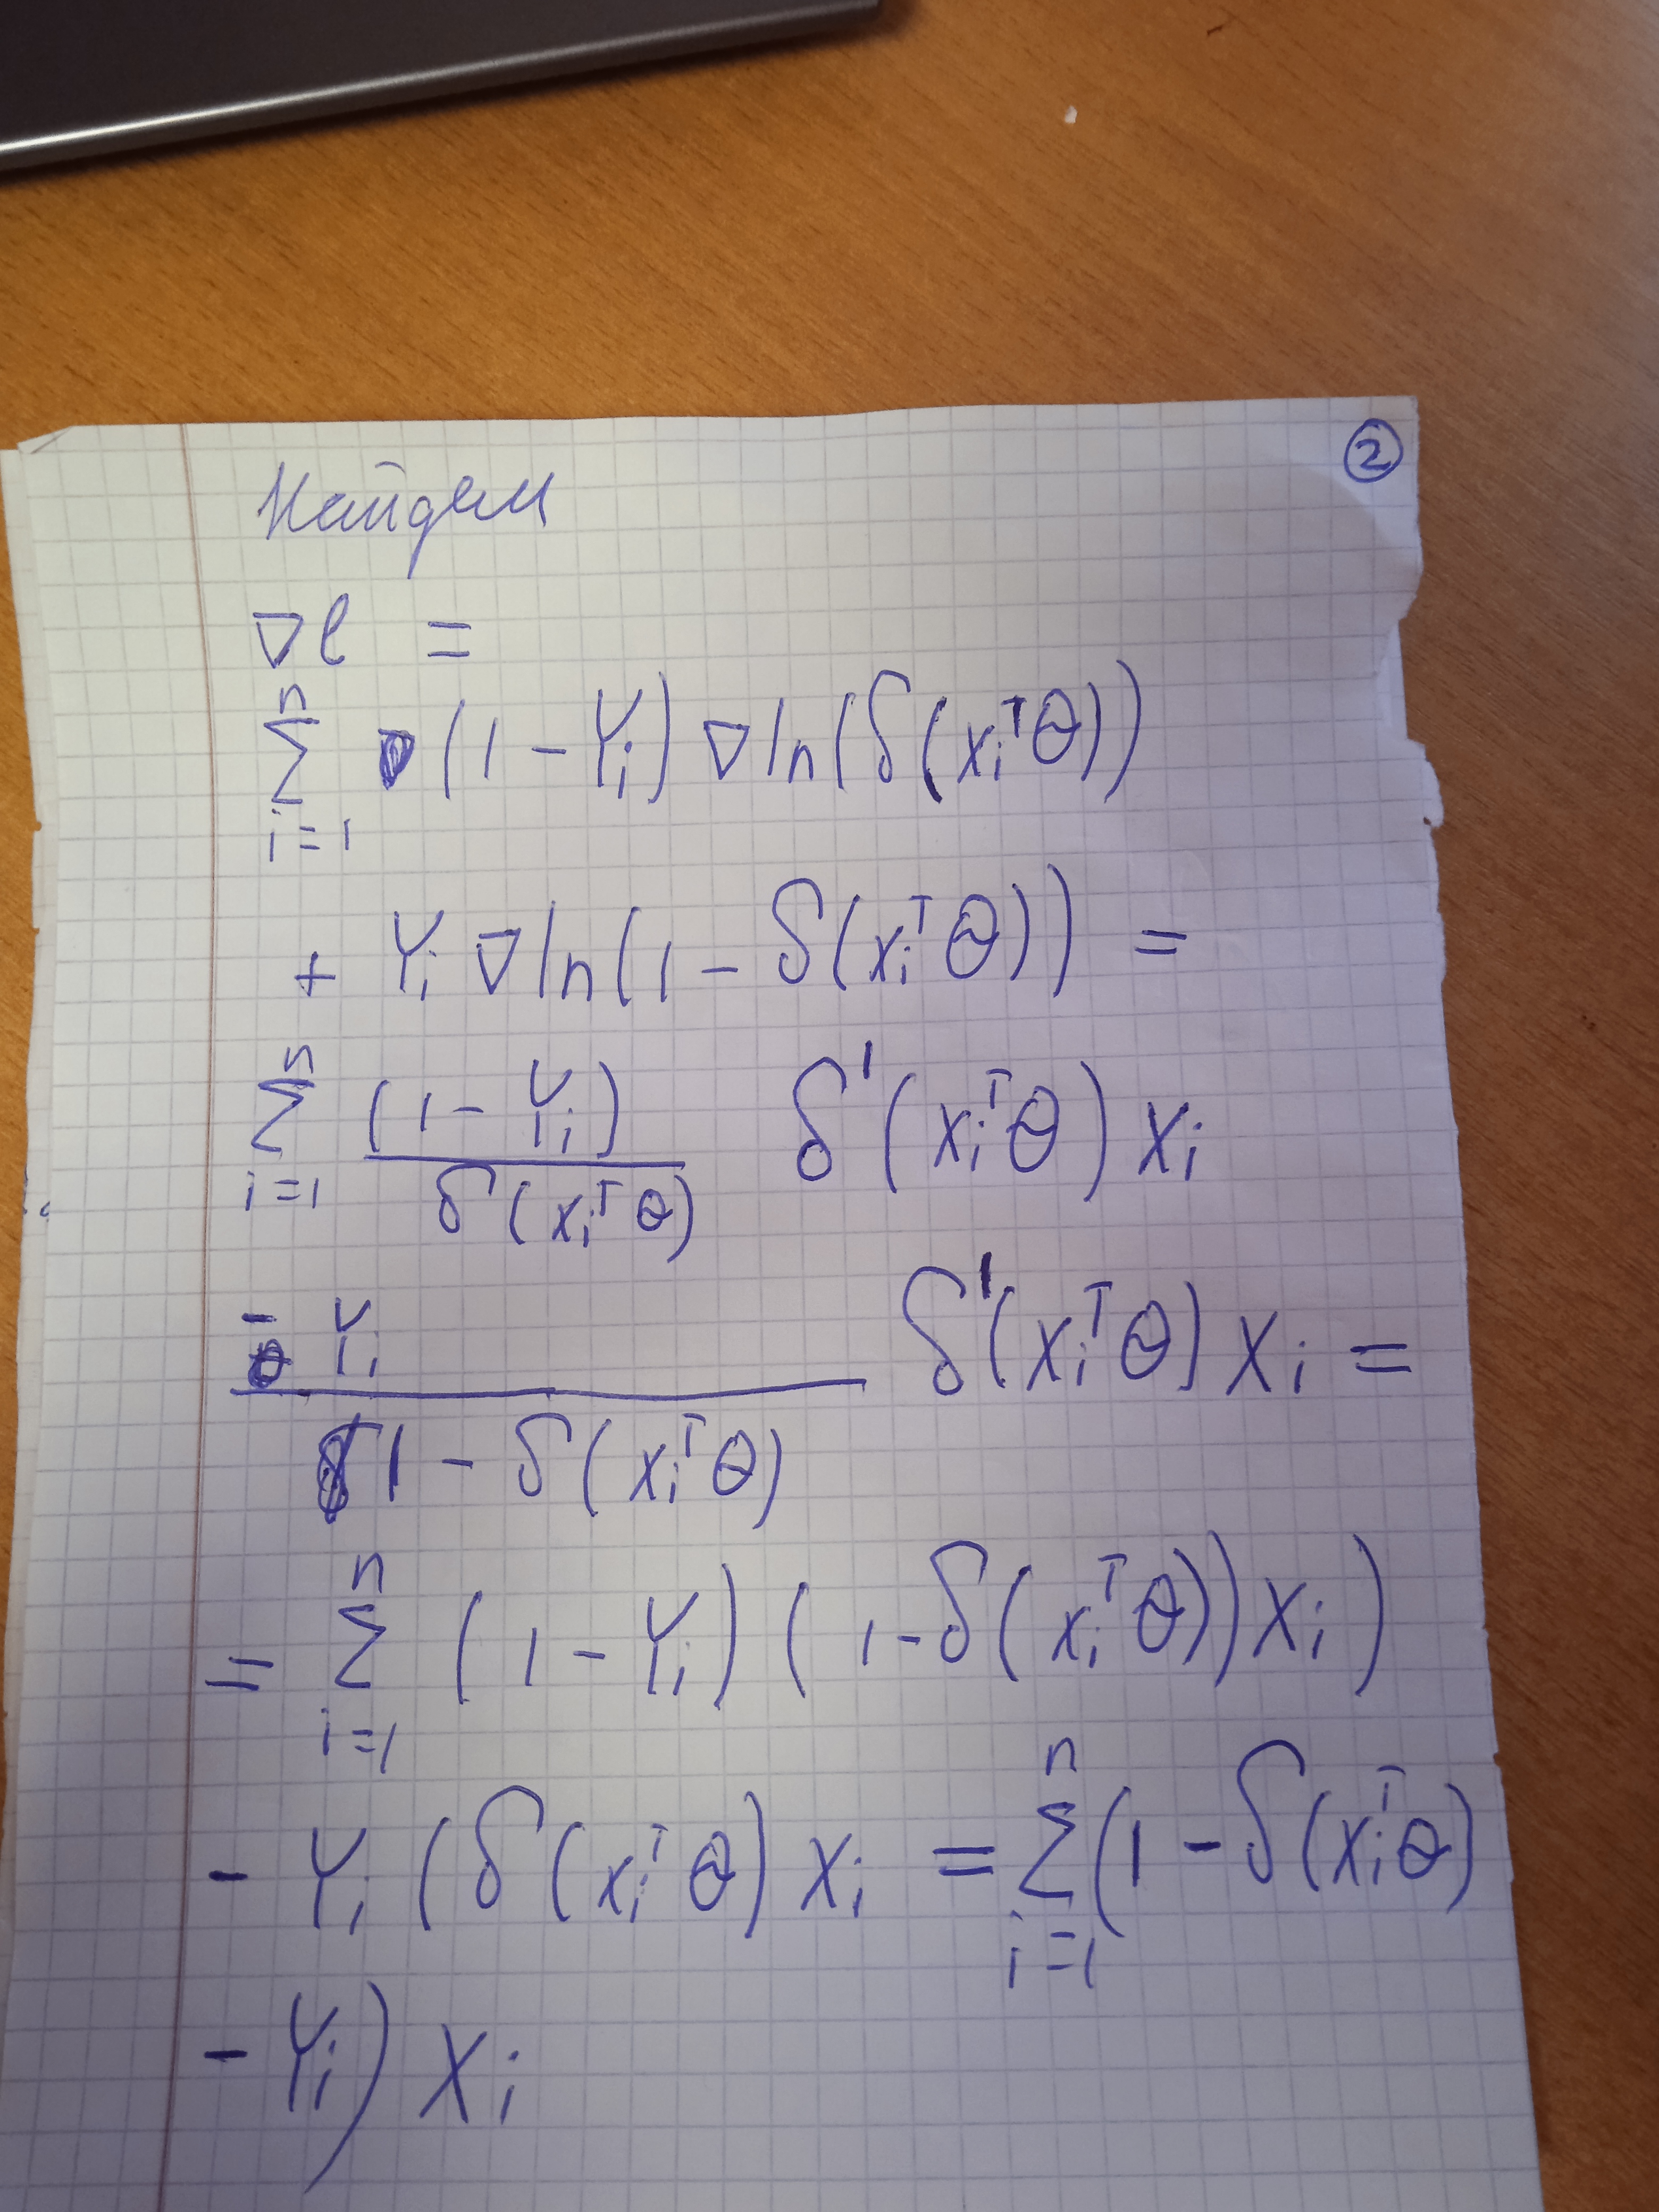 ②
Найдем
∇ℓ =
∑_{i=1}^{n} (1 - Y_i) ∇ ln(δ(x_i^T θ))
+ Y_i ∇ ln(1 - δ(x_i^T θ)) =
∑_{i=1}^{n} \frac{(1 - Y_i)}{δ(x_i^T θ)} δ'(x_i^T θ) x_i
\frac{- Y_i}{1 - δ(x_i^T θ)} δ'(x_i^T θ) x_i =
= ∑_{i=1}^{n} (1 - Y_i) (1 - δ(x_i^T θ)) x_i )
- Y_i (δ(x_i^T θ) x_i = ∑_{i=1}^{n} (1 - δ(x_i^T θ)
- Y_i) x_i